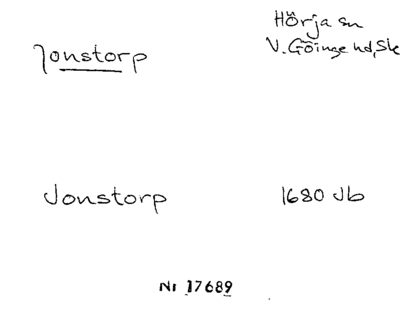 Jonstorp
Hörja sn
V. Göinge hd, Sk
Jonstorp
1680 Jb
Nr 17689